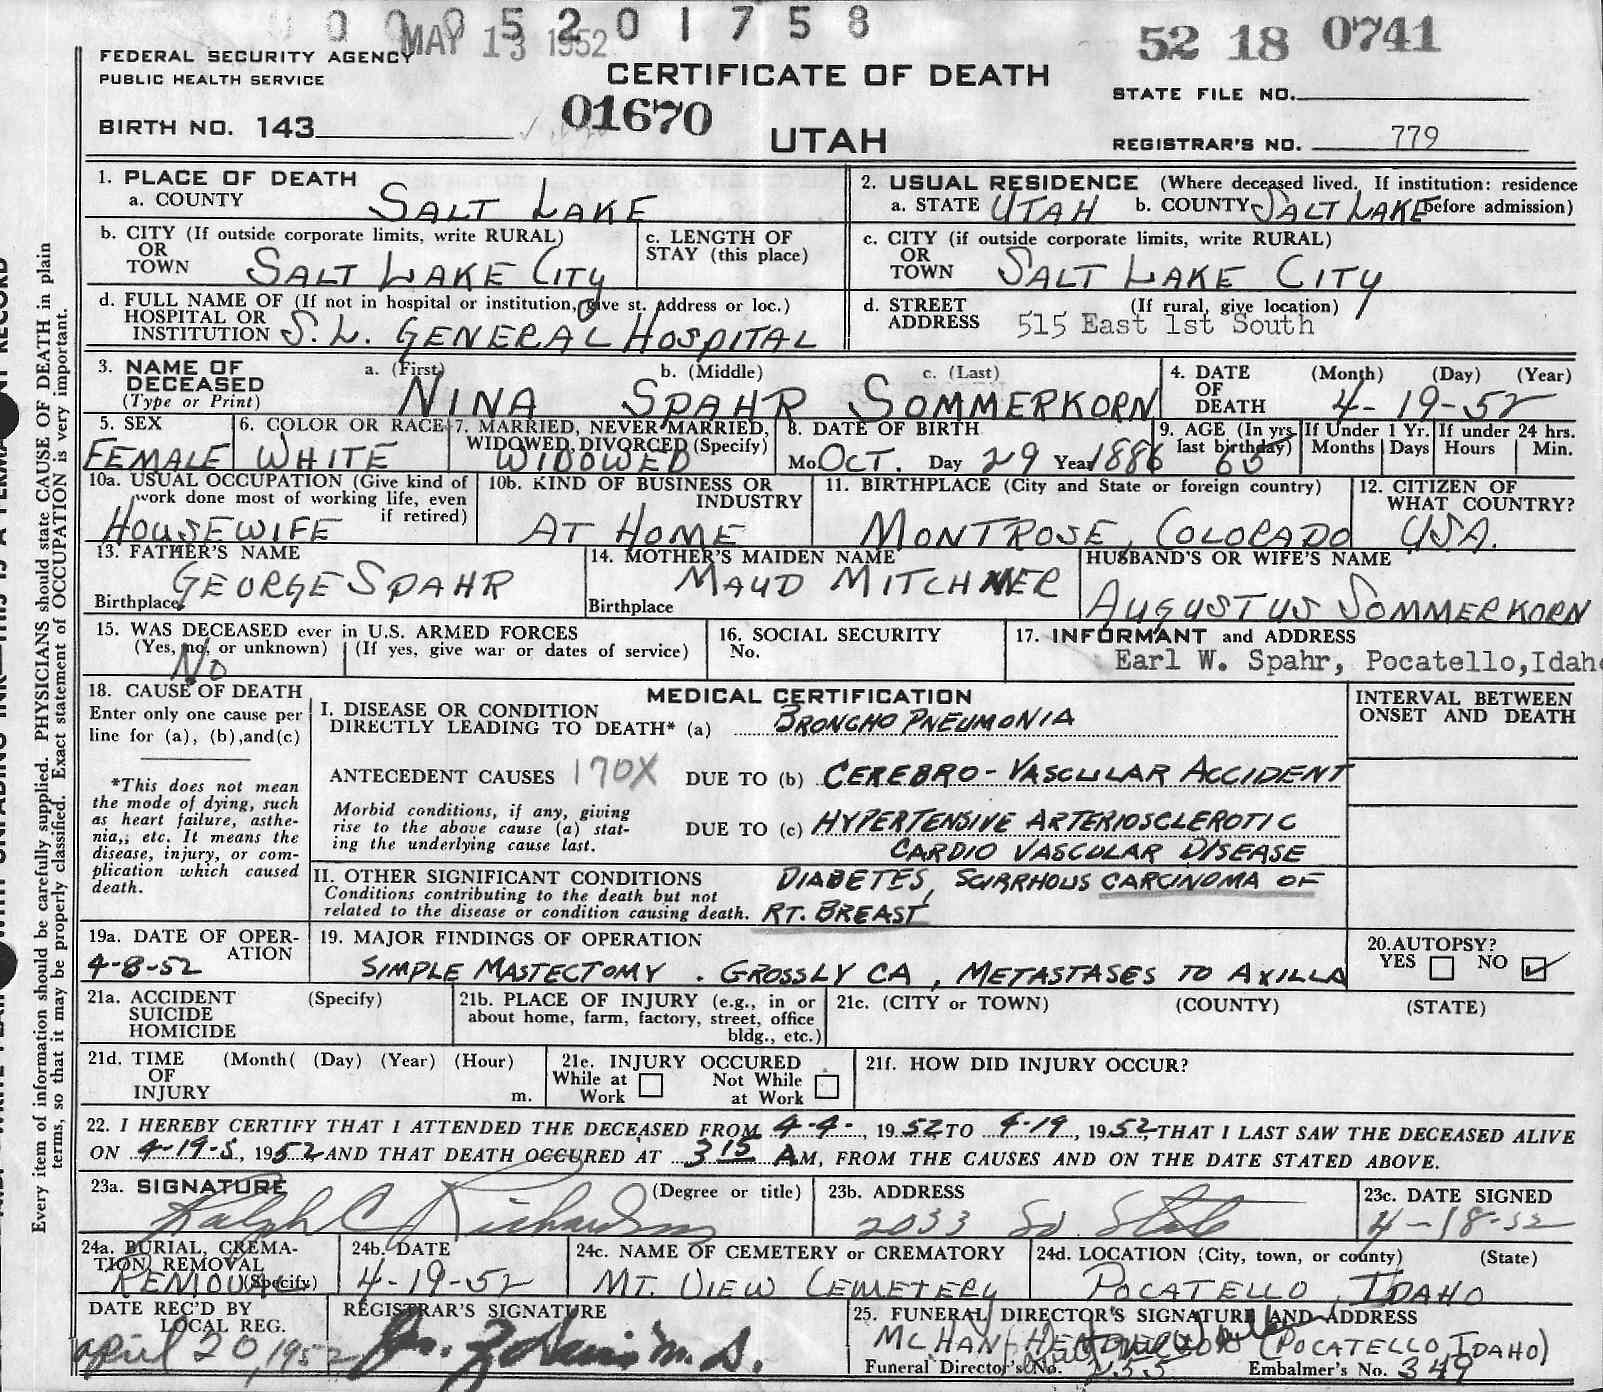 0 0 0 5 2 0 1 7 5 8
MAY 13 1952
52 18 0741
FEDERAL SECURITY AGENCY
PUBLIC HEALTH SERVICE
CERTIFICATE OF DEATH
STATE FILE NO.
BIRTH NO. 143
01670
UTAH
REGISTRAR'S NO. 779
1. PLACE OF DEATH
a. COUNTY SALT LAKE
2. USUAL RESIDENCE (Where deceased lived. If institution: residence
a. STATE UTAH b. COUNTY SALT LAKE before admission)
b. CITY (If outside corporate limits, write RURAL)
OR
TOWN SALT LAKE CITY
c. LENGTH OF
STAY (this place)
c. CITY (if outside corporate limits, write RURAL)
OR
TOWN SALT LAKE CITY
d. FULL NAME OF (If not in hospital or institution, give st. Address or loc.)
HOSPITAL OR
INSTITUTION S.L. GENERAL HOSPITAL
d. STREET (If rural, give location)
ADDRESS 515 East 1st South
3. NAME OF
DECEASED
(Type or Print)
a. (First) b. (Middle) c. (Last)
NINA SPAHR SOMMERKORN
4. DATE (Month) (Day) (Year)
OF
DEATH 4-19-52
5. SEX
FEMALE
6. COLOR OR RACE
WHITE
7. MARRIED, NEVER MARRIED,
WIDOWED, DIVORCED (Specify)
WIDOWED
8. DATE OF BIRTH
Mo OCT. Day 29 Year 1886
9. AGE (In yrs
last birthday) 65
If Under 1 Yr.
Months Days
If under 24 hrs.
Hours Min.
10a. USUAL OCCUPATION (Give kind of
work done most of working life, even
if retired)
HOUSEWIFE
10b. KIND OF BUSINESS OR
INDUSTRY
AT HOME
11. BIRTHPLACE (City and State or foreign country)
MONTROSE, COLORADO
12. CITIZEN OF
WHAT COUNTRY?
USA.
13. FATHER'S NAME
GEORGE SPAHR
Birthplace
14. MOTHER'S MAIDEN NAME
MAUD MITCHNER
Birthplace
HUSBAND'S OR WIFE'S NAME
AUGUSTUS SOMMERKORN
15. WAS DECEASED ever in U.S. ARMED FORCES
(Yes, no, or unknown) (If yes, give war or dates of service)
NO
16. SOCIAL SECURITY
No.
17. INFORMANT and ADDRESS
Earl W. Spahr, Pocatello, Idaho
18. CAUSE OF DEATH
Enter only one cause per
line for (a), (b),and(c)
*This does not mean
the mode of dying, such
as heart failure, asthe-
nia,; etc. It means the
disease, injury, or com-
plication which caused
death.
MEDICAL CERTIFICATION
I. DISEASE OR CONDITION
DIRECTLY LEADING TO DEATH* (a) BRONCHO PNEUMONIA
ANTECEDENT CAUSES 170X DUE TO (b) CEREBRO-VASCULAR ACCIDENT
Morbid conditions, if any, giving
rise to the above cause (a) stat-
ing the underlying cause last.
DUE TO (c) HYPERTENSIVE ARTERIOSCLEROTIC
CARDIO VASCULAR DISEASE
II. OTHER SIGNIFICANT CONDITIONS
Conditions contributing to the death but not
related to the disease or condition causing death.
DIABETES, SCIRRHOUS CARCINOMA OF
RT. BREAST
INTERVAL BETWEEN
ONSET AND DEATH
19a. DATE OF OPER-
ATION
4-8-52
19. MAJOR FINDINGS OF OPERATION
SIMPLE MASTECTOMY. GROSSLY CA, METASTASES TO AXILLA
20. AUTOPSY?
YES NO
21a. ACCIDENT (Specify)
SUICIDE
HOMICIDE
21b. PLACE OF INJURY (e.g., in or
about home, farm, factory, street, office
bldg., etc.)
21c. (CITY or TOWN) (COUNTY) (STATE)
21d. TIME (Month( (Day) (Year) (Hour)
OF
INJURY m.
21e. INJURY OCCURED
While at Work Not While at Work
21f. HOW DID INJURY OCCUR?
22. I HEREBY CERTIFY THAT I ATTENDED THE DECEASED FROM 4-4-, 1952 TO 4-19, 1952, THAT I LAST SAW THE DECEASED ALIVE
ON 4-19-5, 1952 AND THAT DEATH OCCURED AT 3 15 AM, FROM THE CAUSES AND ON THE DATE STATED ABOVE.
23a. SIGNATURE (Degree or title)
Ralph C Richardson
23b. ADDRESS
2033 So State
23c. DATE SIGNED
4-18-52
24a. BURIAL, CREMA-
TION, REMOVAL
(Specify)
REMOVAL
24b. DATE
4-19-52
24c. NAME OF CEMETERY or CREMATORY
MT. VIEW CEMETERY
24d. LOCATION (City, town, or county) (State)
POCATELLO, IDAHO
DATE REC'D BY
LOCAL REG.
April 20, 1952
REGISTRAR'S SIGNATURE
M.D.
25. FUNERAL DIRECTOR'S SIGNATURE AND ADDRESS
MCHAN (POCATELLO IDAHO)
Funeral Director's No. 255 Embalmer's No. 349
Every item of information should be carefully supplied. PHYSICIANS should state CAUSE OF DEATH in plain
terms, so that it may be properly classified. Exact statement of OCCUPATION is very important.